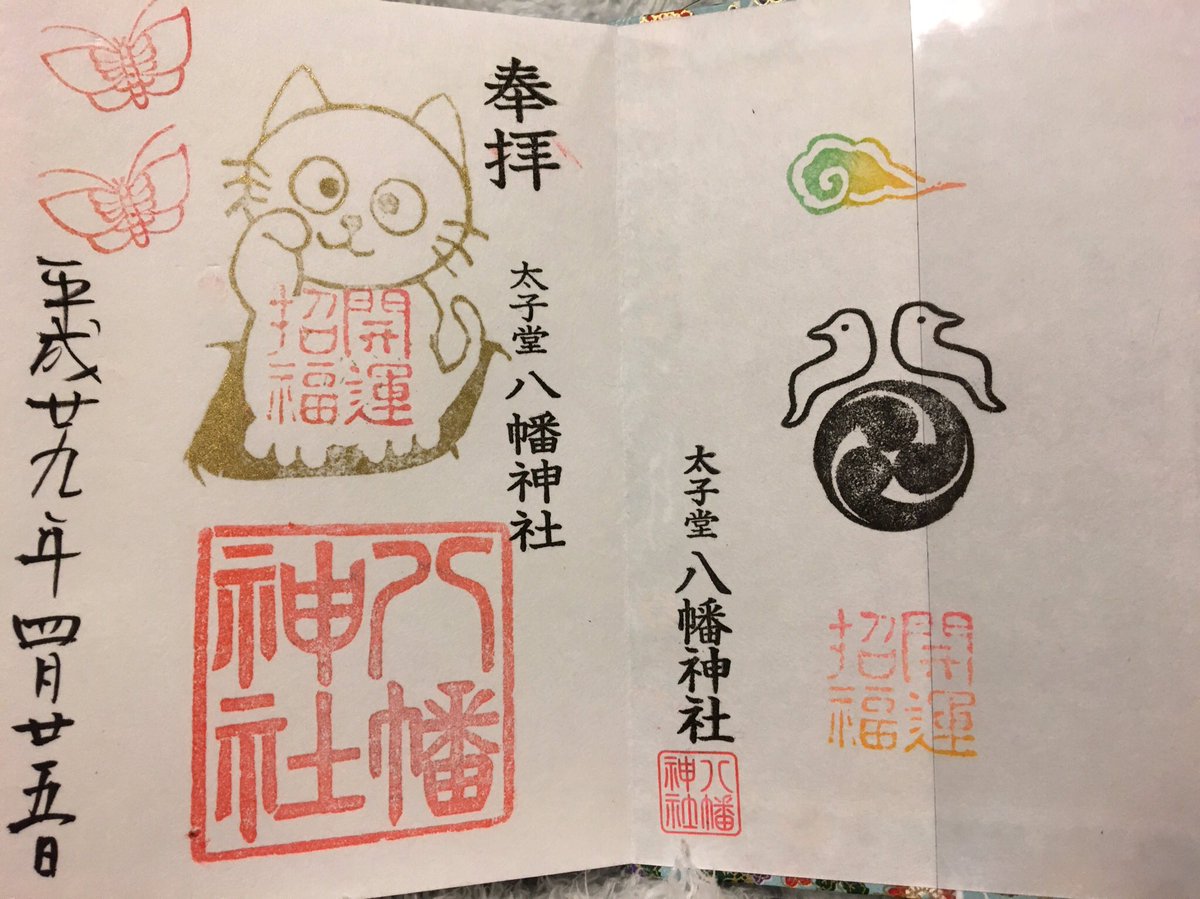 開運
招福
太子堂 八幡神社
八幡
神社
奉拝
太子堂 八幡神社
開運
招福
八幡
神社
平成廿九年四月廿五日